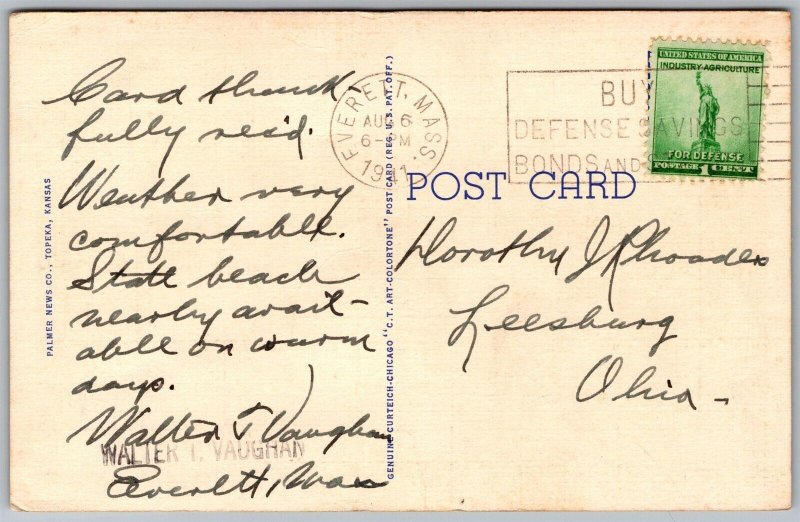 Card thank
fully rec'd.
Weather very
comfortable.
State beach
nearby avail-
able on warm
days.
Walter T Vaughan
WALTER T. VAUGHAN
Everett, Mass
PALMER NEWS CO., TOPEKA, KANSAS
GENUINE CURTEICH-CHICAGO "C.T. ART-COLORTONE" POST CARD (REG. U.S. PAT. OFF.)
EVERETT, MASS.
AUG 6
6-PM
1941
BUY
DEFENSE SAVINGS
BONDS AND
UNITED STATES OF AMERICA
INDUSTRY-AGRICULTURE
FOR DEFENSE
POSTAGE 1 CENT
POST CARD
Dorothy J Rhoades
Leesburg
Ohio -